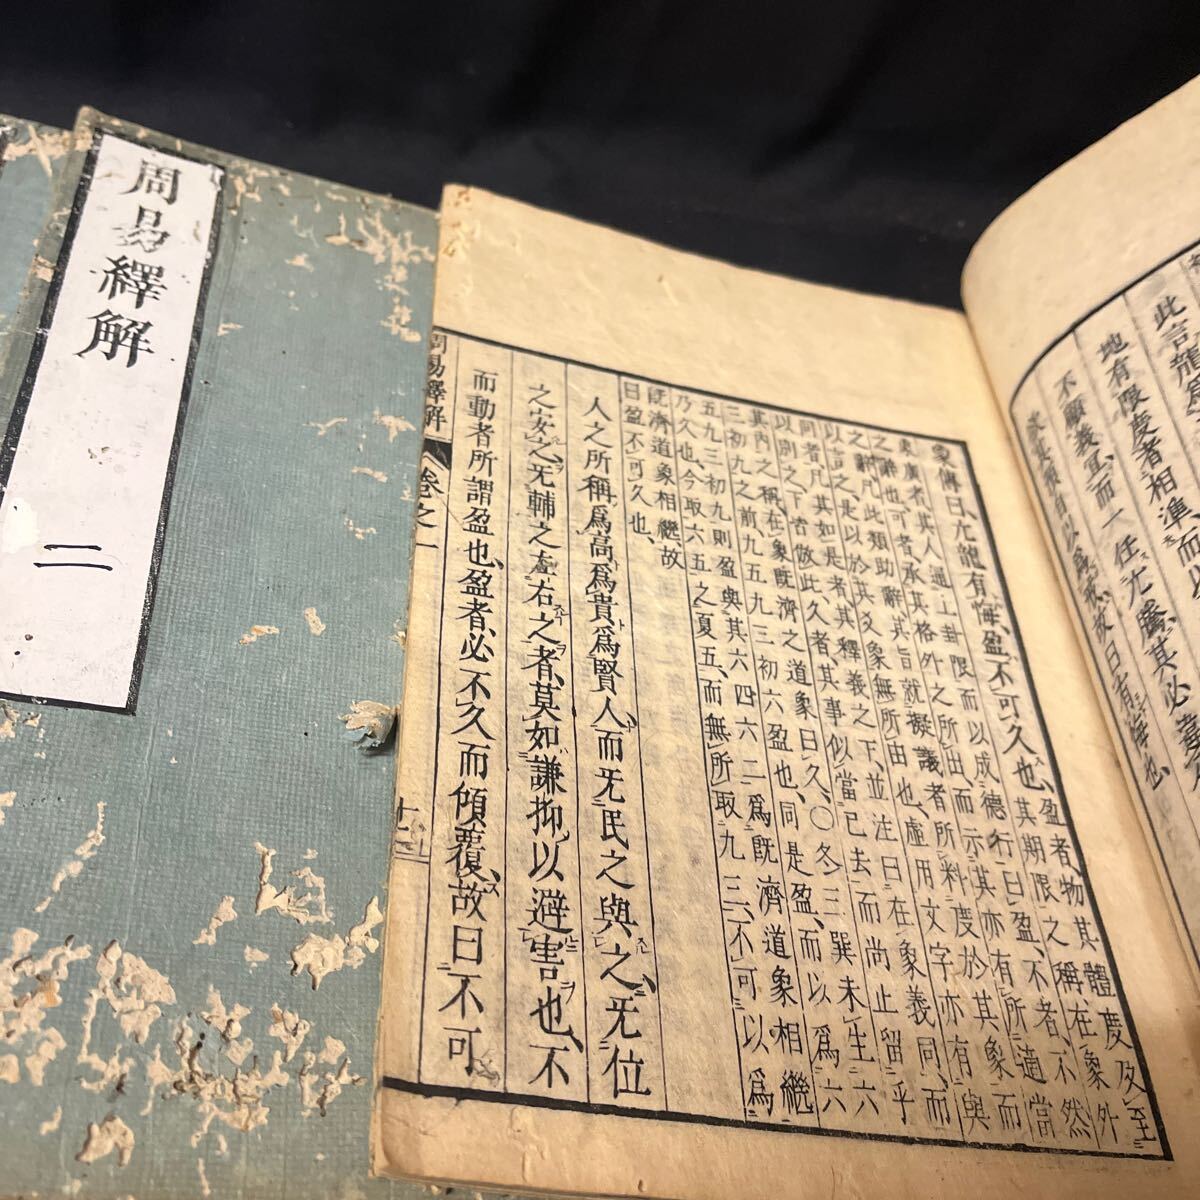 周易繹解
二
此言龍
地有限度者相準而以
不顧義宜而一任亢驕其必
故曰有悔也
象傳曰亢龍有悔盈不可久也盈者物其體度及至
其期限之稱在象外
象廣者其人通上卦限而以成德行曰盈不者不然
可者承其格外之所由而示其亦有所適當
之辭也
之辭凡此類助辭其旨就擬議者所料度於其象而
以言之是以於其爻象無所由也虛用文字亦有與
同者凡其如是者其釋義之下並注曰在象義同而
以別之下皆倣此久者其事似當已去而尚止留乎
其內之稱在象既濟之道象曰久〇冬三巽未生六
三初九之前九五九三初六盈也同是盈而以爲六
五九三初九則盈與其六四六二爲既濟道象相繼
乃久也今取六五之夏五而無所取九三不可以爲
既濟道象相繼故
曰盈不可久也
人之所稱爲高爲貴爲賢人而旡民之與之旡位
之安之旡輔之左右之者莫如謙抑以避害也不
而動者所謂盈也盈者必不久而傾覆故曰不可
周易繹解
卷之一
十二